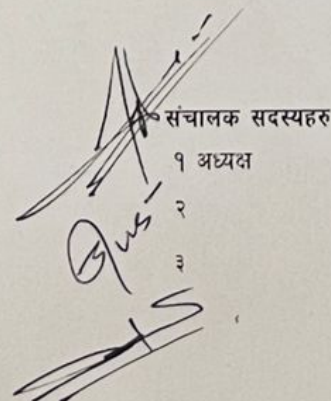 संचालक सदस्यहरु
१ अध्यक्ष
२
३